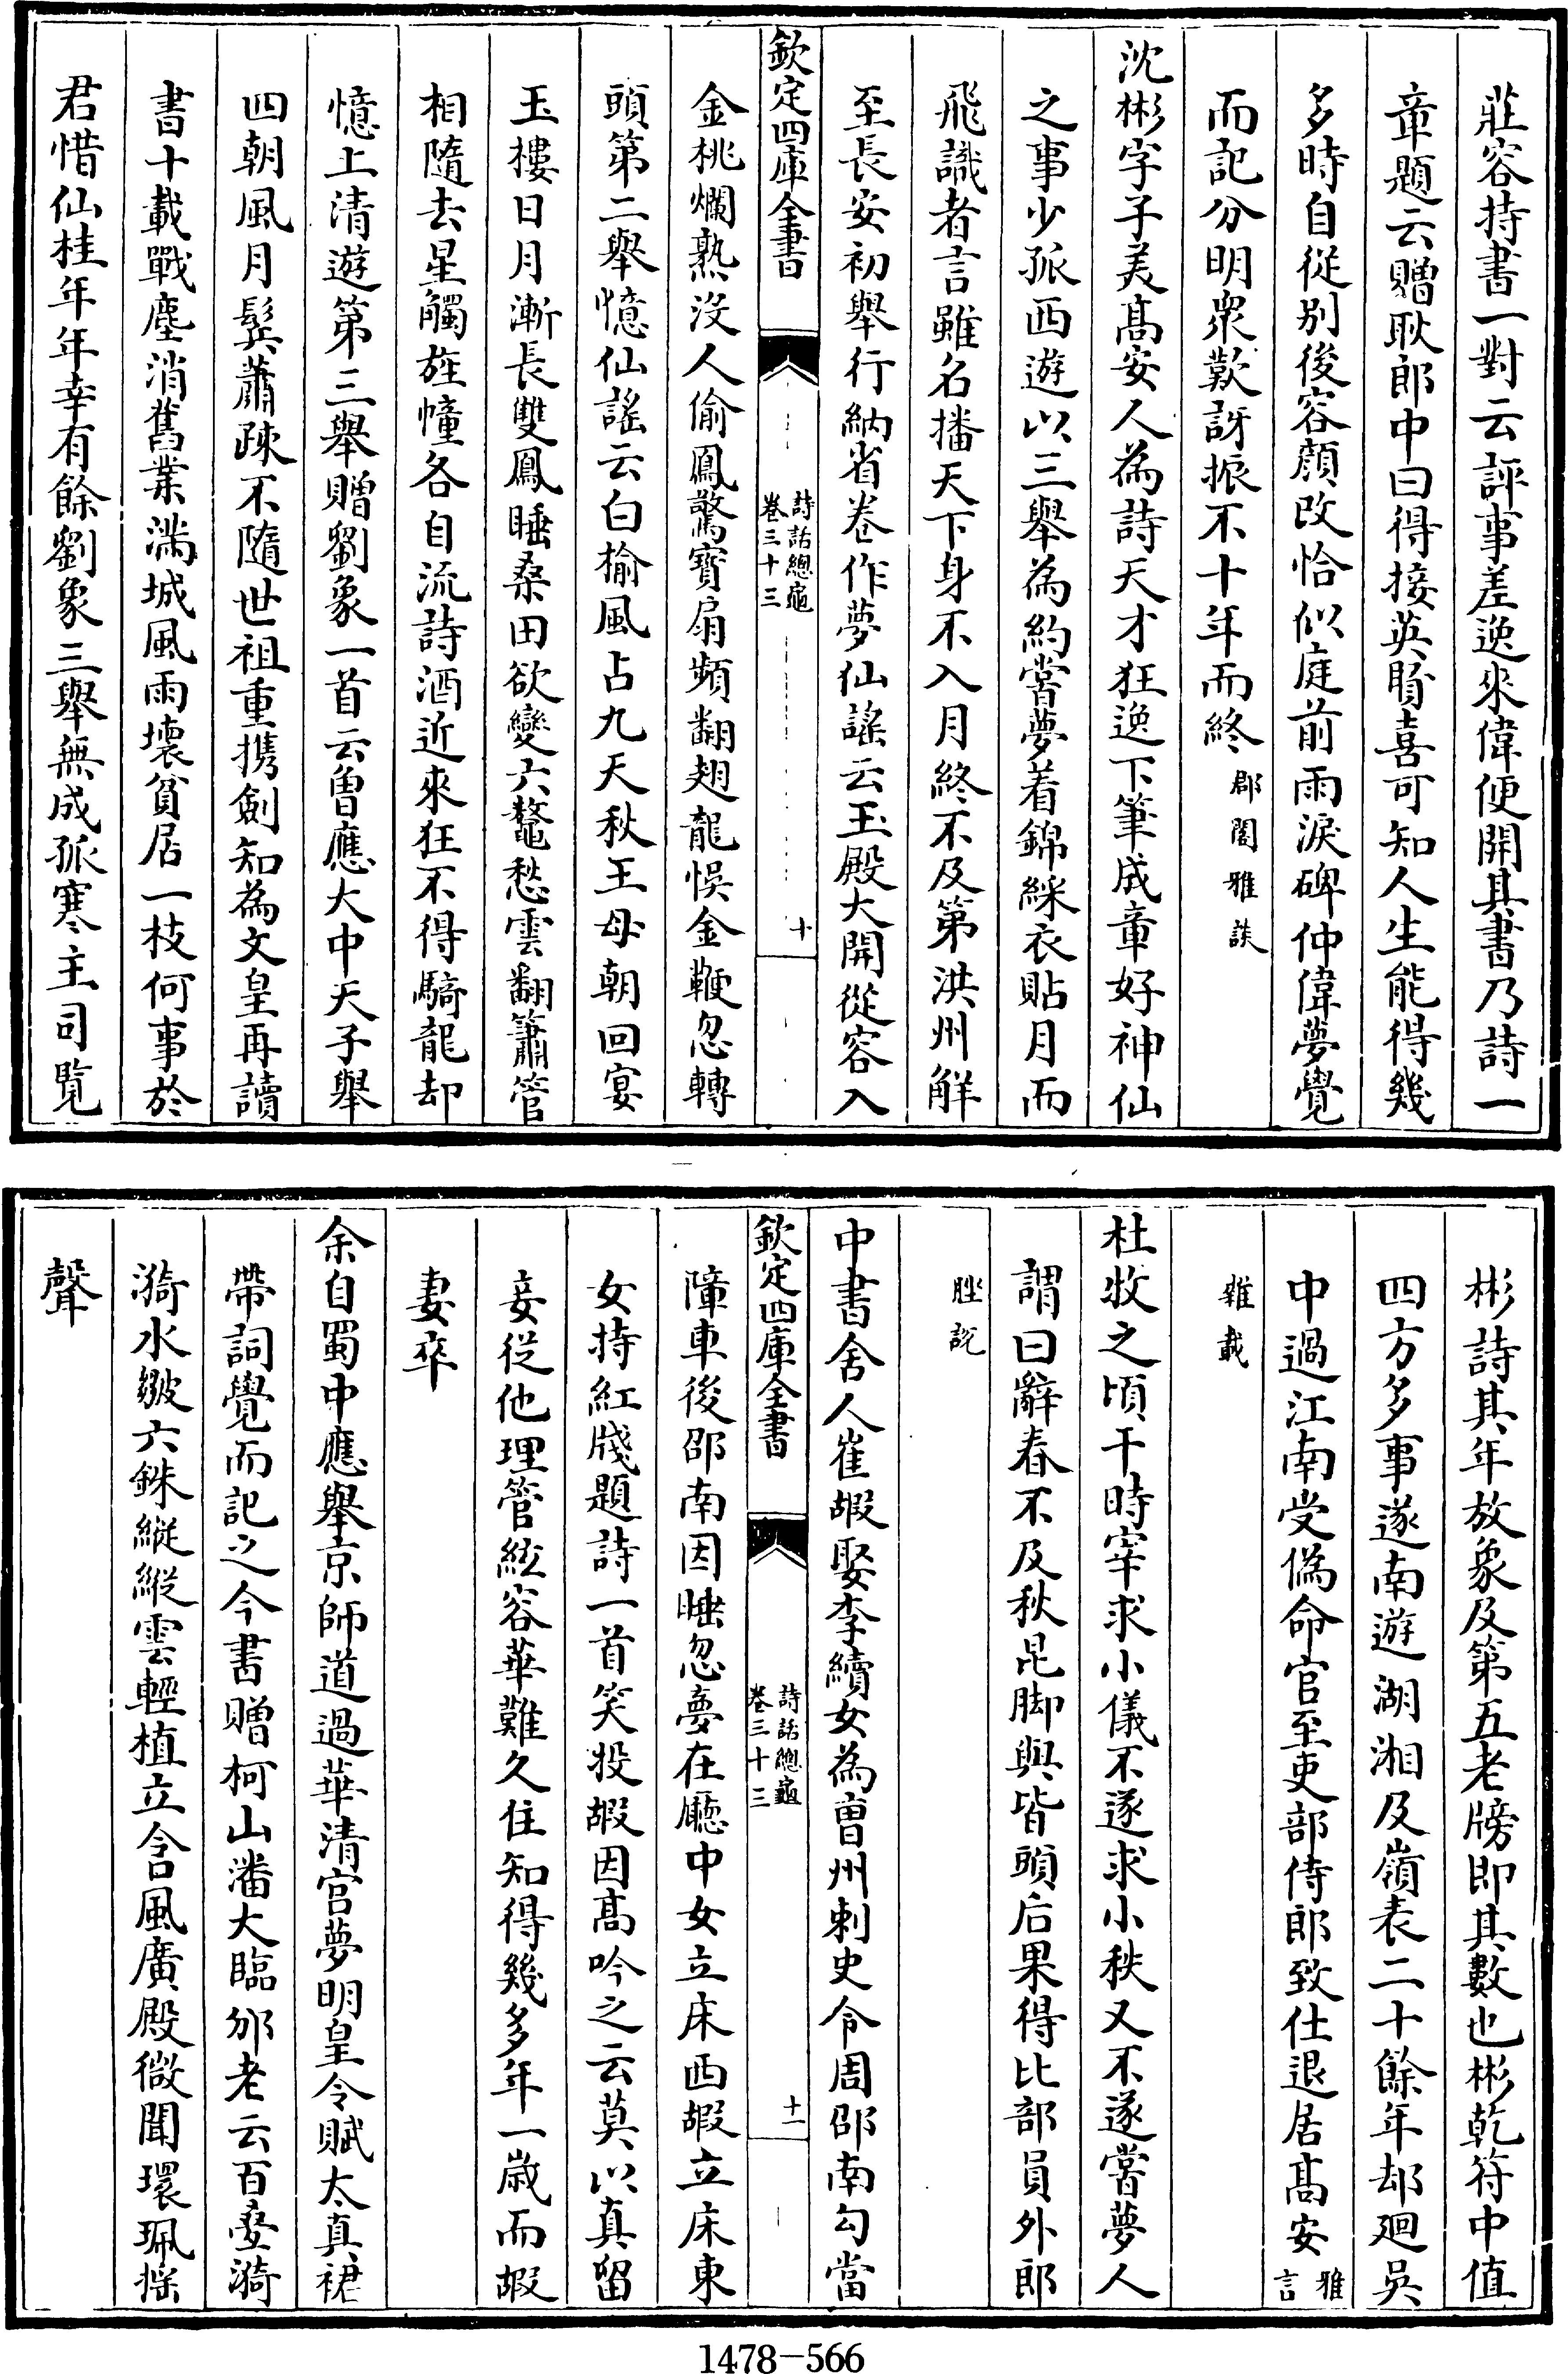 莊容持書一對云評事差逸來偉便開其書乃詩一
章題云贈耿郎中曰得接英賢喜可知人生能得幾
多時自從別後容顏改恰似庭前雨淚碑仲偉夢覺
而記分明衆歎訝振不十年而終郡閣雅談
沈彬字子美髙安人為詩天才狂逸下筆成章好神仙
之事少孤西遊以三舉為約嘗夢着錦綵衣貼月而
飛識者言雖名播天下身不入月終不及第洪州解
至長安初舉行納省卷作夢仙謡云玉殿大開從容入
欽定四庫全書
詩話總龜
卷三十三
十
金桃爛熟沒人偷鳳驚寶扇頻翻翅龍悞金鞭忽轉
頭第二舉憶仙謡云白榆風占九天秋王母朝回宴
玉樓日月漸長雙鳳睡桑田欲變六鼇愁雲翻簫管
相隨去星觸旌幢各自流詩酒近來狂不得騎龍却
憶上清遊第三舉贈劉象一首云曽應大中天子舉
四朝風月鬂蕭疎不隨世祖重携劍知為文皇再讀
書十載戰塵消舊業滿城風雨壞貧居一枝何事於
君惜仙桂年年幸有餘劉象三舉無成孤寒主司覧
彬詩其年放象及第五老牓即其數也彬乾符中值
四方多事遂南遊湖湘及嶺表二十餘年却廻吳
中過江南受偽命官至吏部侍郎致仕退居髙安雅言
雜載
杜牧之頃干時宰求小儀不遂求小秩又不遂嘗夢人
謂曰辭春不及秋昆脚與皆頭后果得比部員外郎
脞說
中書舍人崔嘏娶李續女為曹州刺史令周邵南勾當
欽定四庫全書
詩話總龜
卷三十三
十一
障車後邵南因睡忽夢在廳中女立床西嘏立床東
女持紅牋題詩一首笑投嘏因髙吟之云莫以真留
妾從他理管絃容華難久住知得幾多年一歲而嘏
妻卒
余自蜀中應舉京師道過華清宫夢明皇令賦太真裙
帶詞覺而記之今書贈柯山潘大臨邠老云百疊漪
漪水皺六銖縰縰雲輕植立含風廣殿微聞環珮揺
聲
1478—566